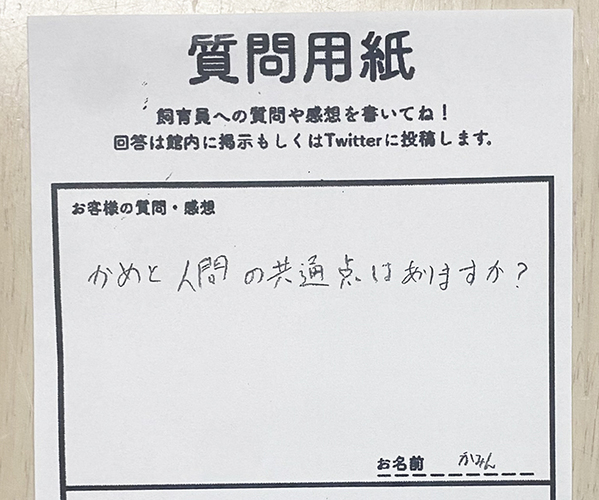 質問用紙
飼育員への質問や感想を書いてね！
回答は館内に掲示もしくはTwitterに投稿します。
お客様の質問・感想
かめと人間の共通点はありますか？
お名前 かみん